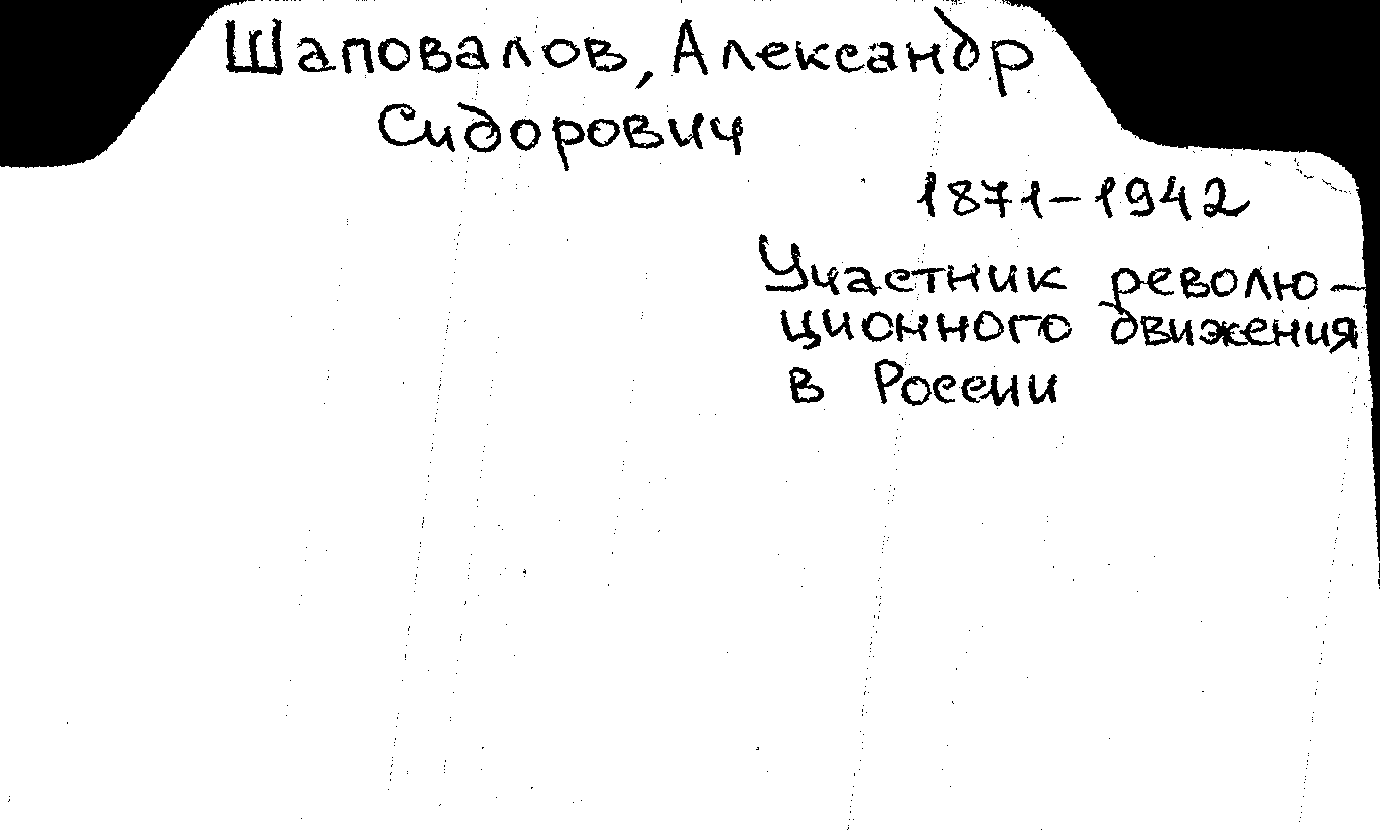 Шаповалов, Александр
Сидорович
1871-1942
Участник револю-
ционного движения
в России